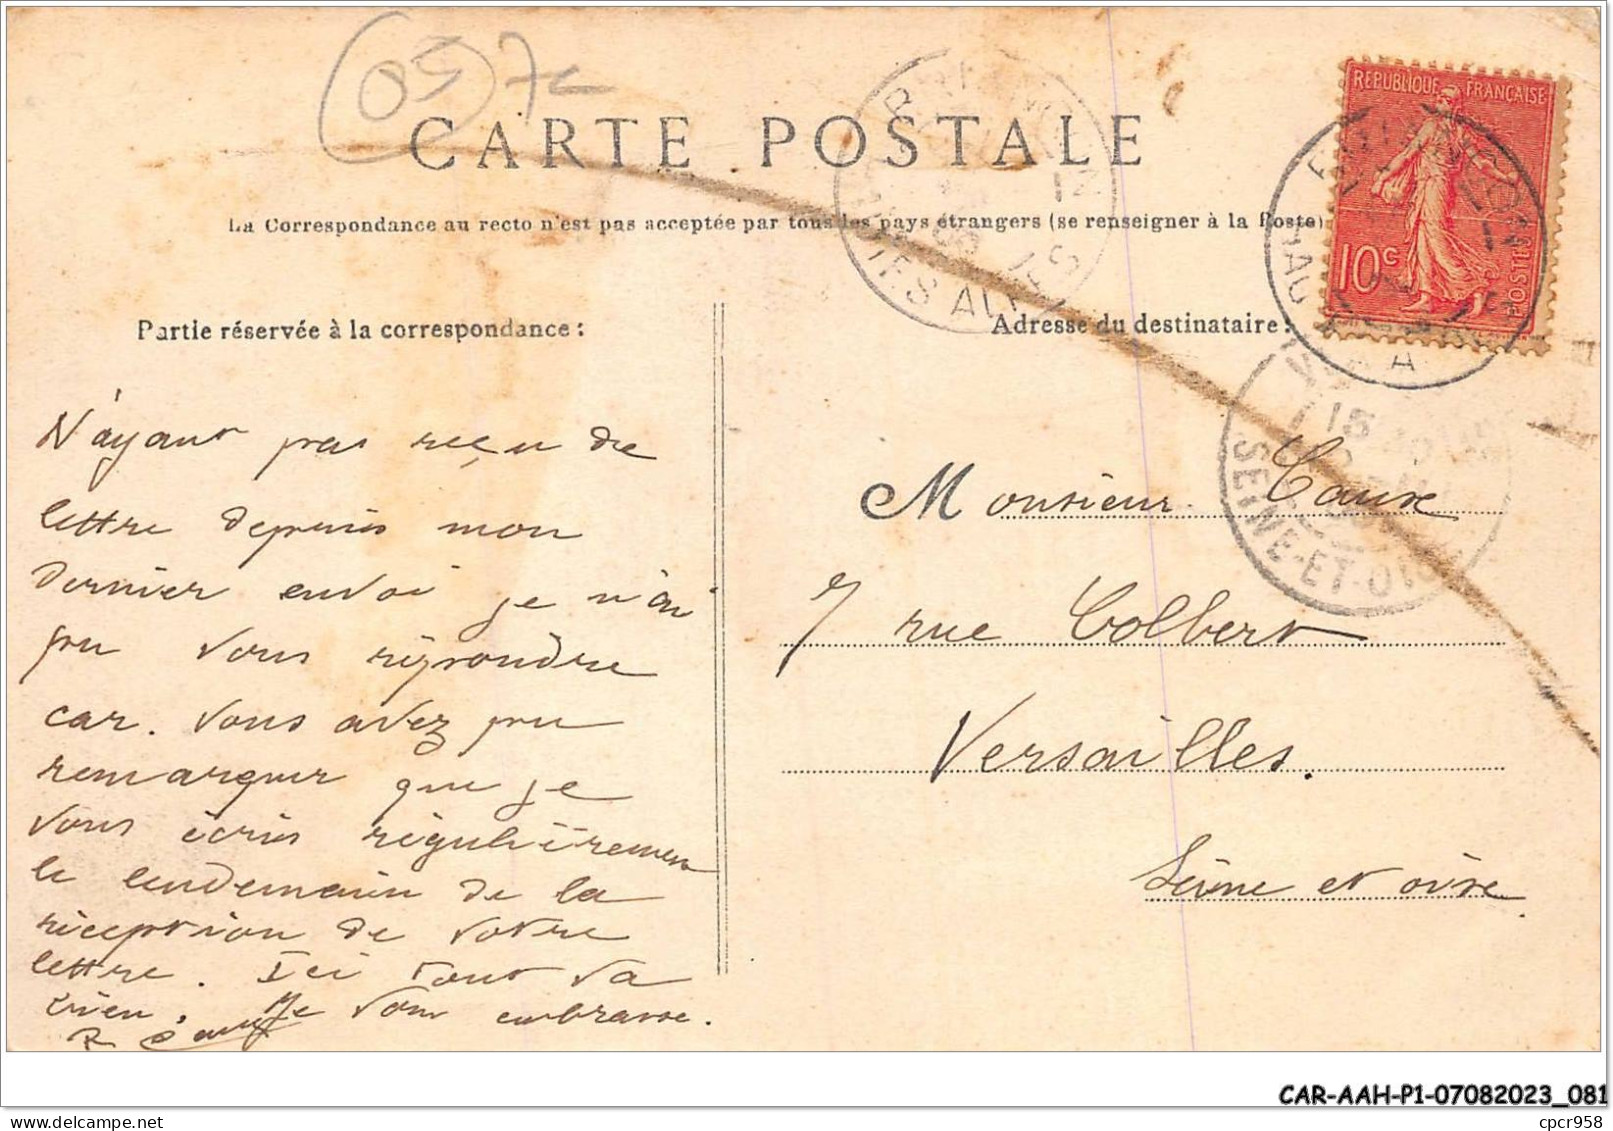 05 7c
CARTE POSTALE
La Correspondance au recto n'est pas acceptée par tous les pays étrangers (se renseigner à la Poste)
REPUBLIQUE FRANÇAISE
10c
POSTES
BRIANCON
HAUTES ALPES
SEINE-ET-OISE
Partie réservée à la correspondance :
N'ayant pas reçu de
lettre depuis mon
dernier envoi je n'ai
pu vous répondre
car. Vous avez pu
remarquer que je
vous écris régulièrement
le lendemain de la
réception de votre
lettre. Ici tout va
bien, Je vous embrasse.
Adresse du destinataire :
Monsieur Caux
7 rue Colbert
Versailles.
Seine et oise
CAR-AAH-P1-07082023_081
cpcr958